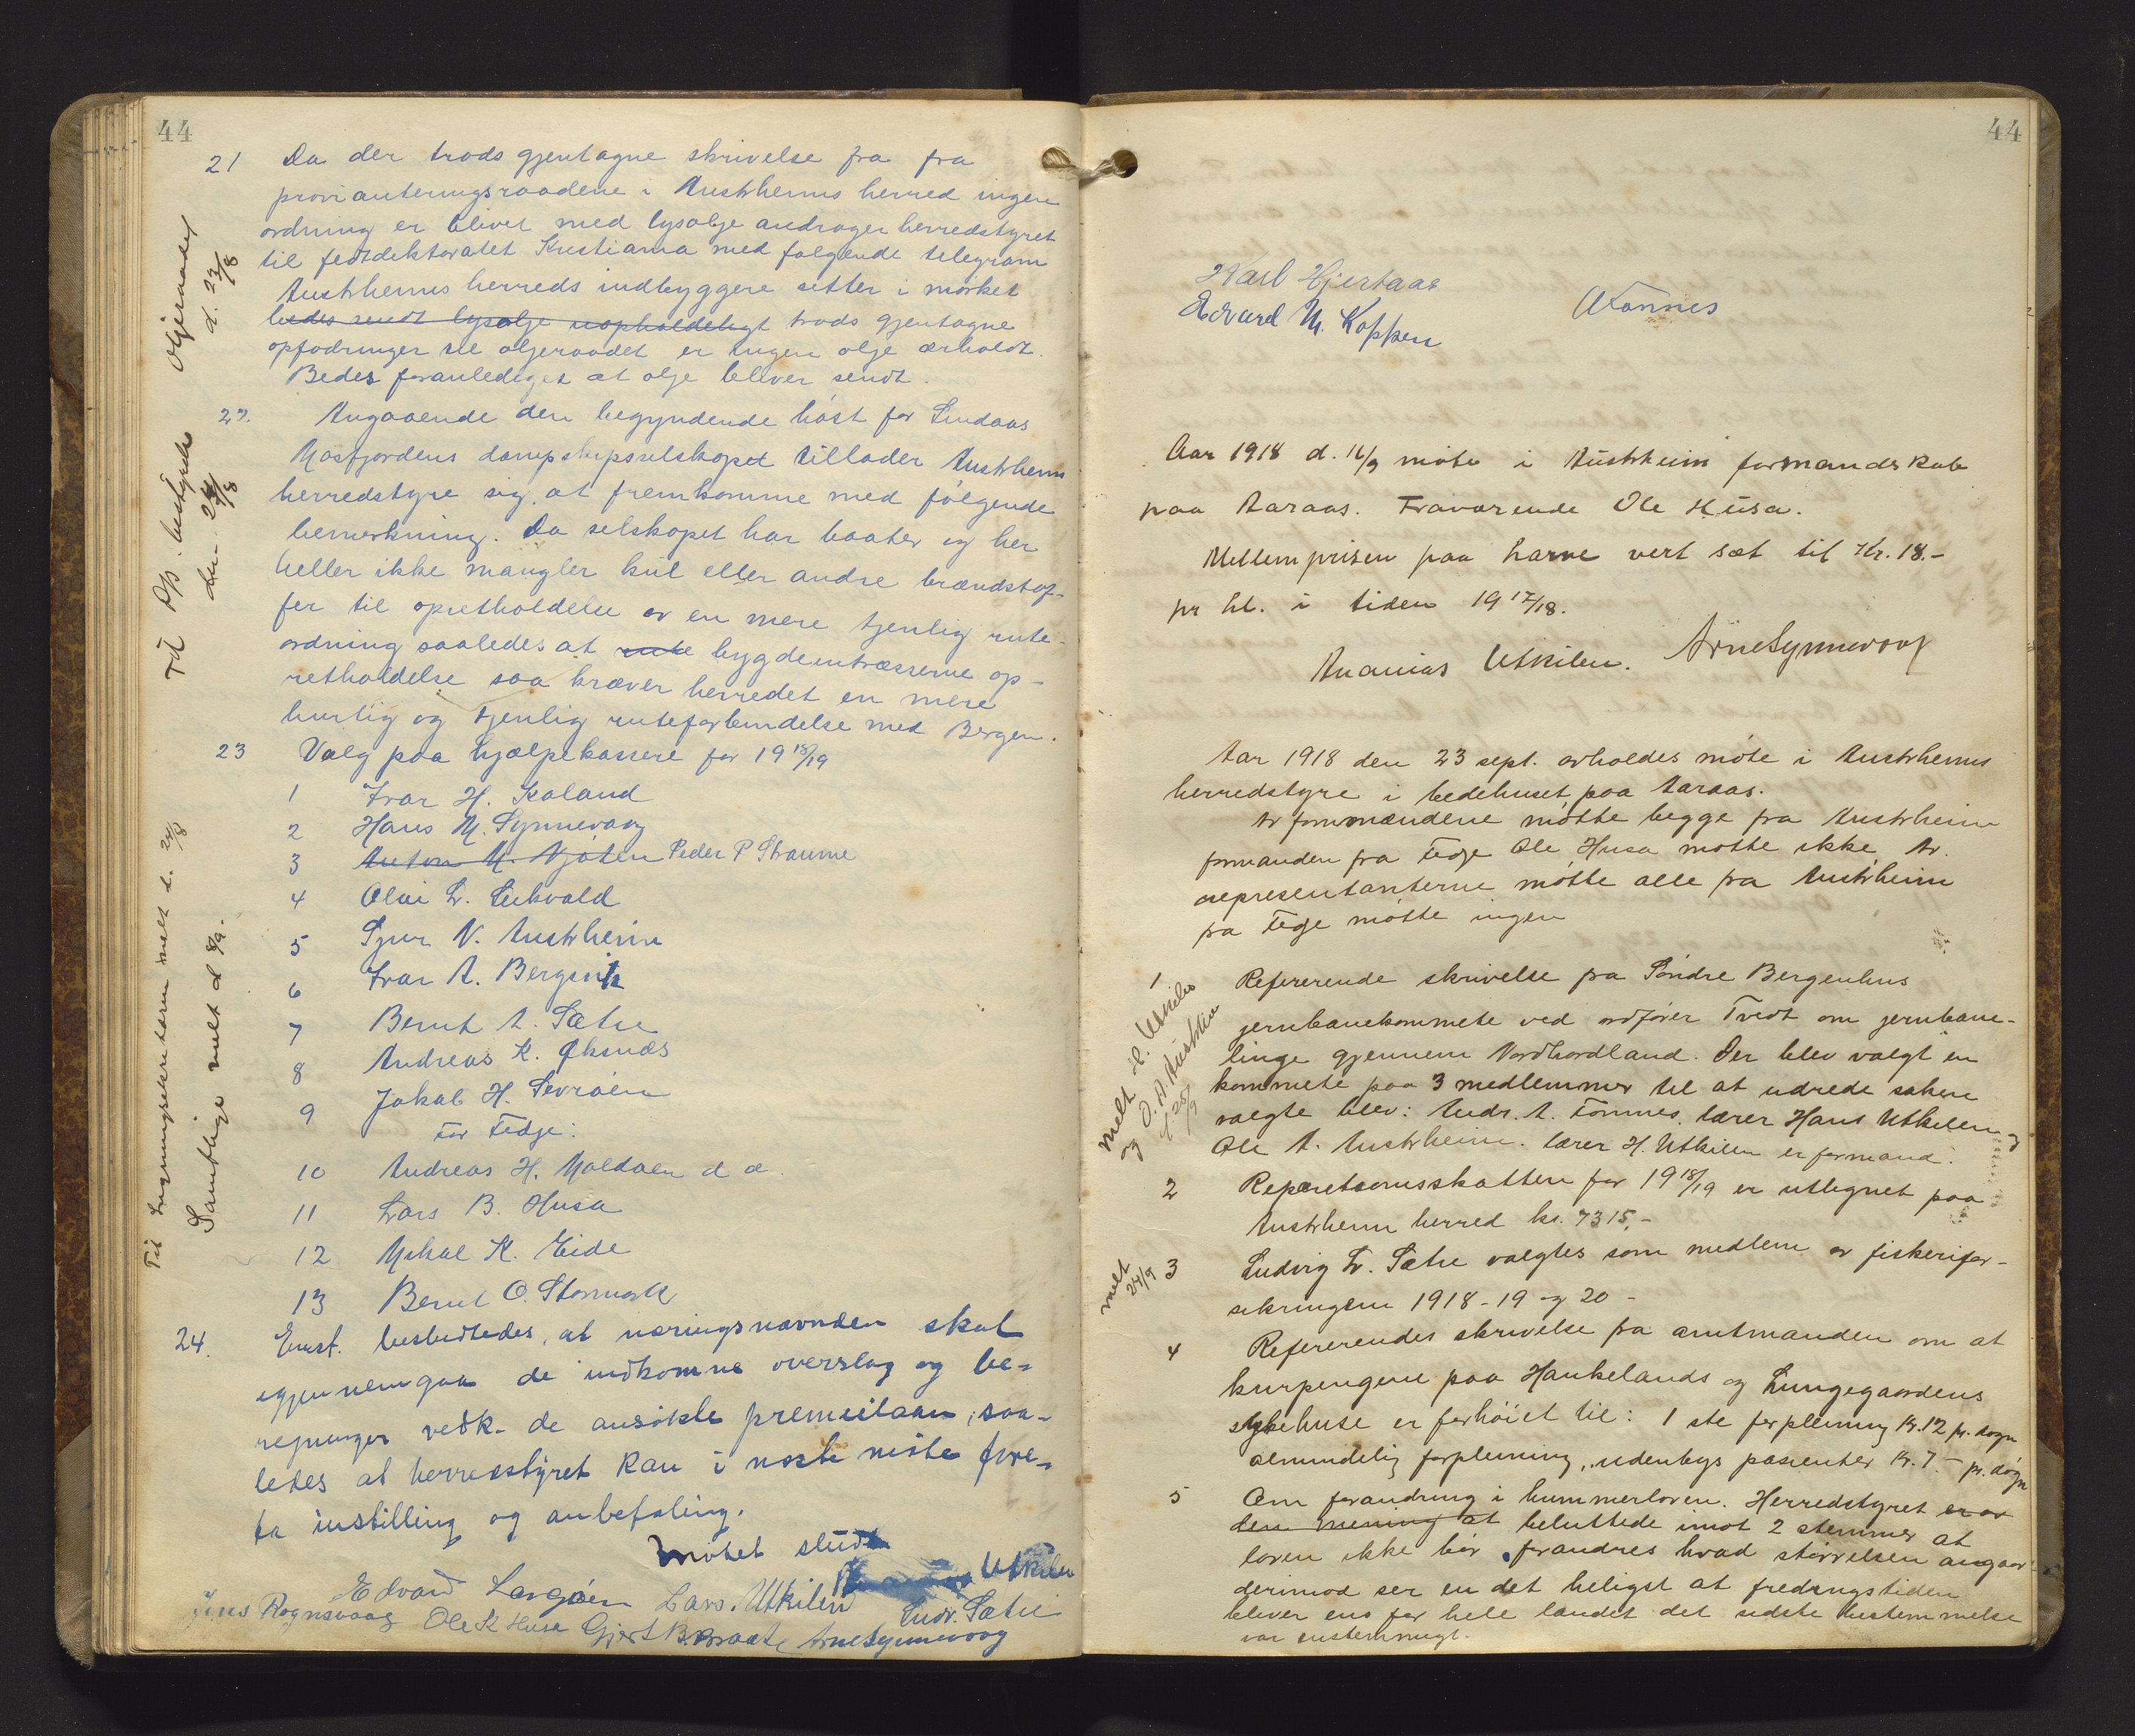 44
21 Da der trods gjentagne skrivelse fra fra
provianteringsraadene i Austrheims herred ingen
ordning er blivet med lysolje andrager herredstyret
til fedtdektoratet Kristiania med følgende telegram
Austrheims herreds indbyggere sitter i mørket
bedes sendt lysolje uopholdeligt trods gjentagne
opfodringer til oljeraadet er ingen olje ærholdt.
Bedes foranlediget at olje bliver sendt.
22. Angaaende den begyndende høst for Lindaas
Masfjordens dampskipsselskapet tillader Austrheims
herredstyre sig at fremkomme med følgende
bemerkning. Da selskapet har baater og her
heller ikke mangler kul eller andre brændstof-
fer til opretholdelse av en mere tjenlig rute-
ordning saaledes at rute bygdeintræsserne op-
retholdelse saa kræver herredet en mere
hurtig og tjenlig ruteforbindelse med Bergen.
23 Valg paa hjælpekassere for 19 18/19
1 Ivar H. Kaland
2 Hans M. Synnevaag
3 Anton M. Njøten Peder P Straume
4 Olai L. Leikvold
5 Sjur N. Austrheim
6 Ivar A. Bergsvik
7 Bernt A. Sætre
8 Andreas K. Øksnæs
9 Jakob H. Sevrøen
For Fedje:
10 Andreas H. Moldøen d æ.
11 Lars B. Husa
12 Mikal K. Eide
13 Bernt O. Stormark
24. Enst. besluttedes, at næringsnævnden skal
igjennemgaa de indkomne overslag og be-
regninger vedk. de ansøkte premielaan, saa-
ledes at herredstyret kan i næste møte fore-
ta instilling og anbefaling.
Møtet slut
Utkilen
Edvard Langøen Lars. Utkilen Andr. Sætre
Jens Rognsvaag Ole K Husa Gjert B. Braate Arne Synnevaag
oljeraadet
d. 23/8
den 24/8
Til Ligningssekretæren melt d. 24/8
Samtlige melt d 8/9.
44
Karl Hjertaas
Edvard M. Koppen
AFonnes
Aar 1918 d. 16/9 møte i Austrheim formandskab
paa Aaraas. Fraværende Ole Husa.
Mellemprisen paa havre vert sæt til Kr. 18.-
pr hl. i tiden 19 17/18.
Ananias Utkilen. Arne Synnevaag
Aar 1918 den 23 sept. avholdes møte i Austrheims
herredstyre i bedehuset paa Aaraas.
Av formændene møtte begge fra Austrheim
formanden fra Fedje Ole Husa møtte ikke, Av
representanterne møtte alle fra Austrheim
fra Fedje møtte ingen
1 Refererende skrivelse fra Søndre Bergenhus
jernbanekommete ved ordfører Tvedt om jernbane-
linge gjennem Nordhordland. Der blev valgt en
kommete paa 3 medlemmer til at udrede saken
valgte blev: Andr. A. Fonnes, lærer Hans Utkilen og
Ole A. Austrheim. lærer H. Utkilen er formand.
melt H. Utkilen
og O. A. Austrheim
d. 25/9
2 Reparetsonsskatten for 19 18/19 er utlignet paa
Austrheim herred kr. 7315,-
3 Ludvig L. Sætre valgtes som medlem av fiskerifor-
sikringen 1918-19 og 20 -
melt
24/9
4 Refererendes skrivelse fra amtmanden om at
kurpengene paa Haukelands og Lungegaardens
sykehuse er forhøiet til: 1 ste forpleining Kr. 12 pr. døgn
almindelig forpleining, udenbys pasienter Kr. 7.- pr. døgn
5 Om forandring i hummerloven. Herredstyret er av
den mening at beluttede imot 2 stemmer at
loven ikke bør forandres hvad størrelsen angaar
derimod ser en det heligst at fredningstiden
bliver ens for hele landet det sidste bestemmelse
var enstemmigt.